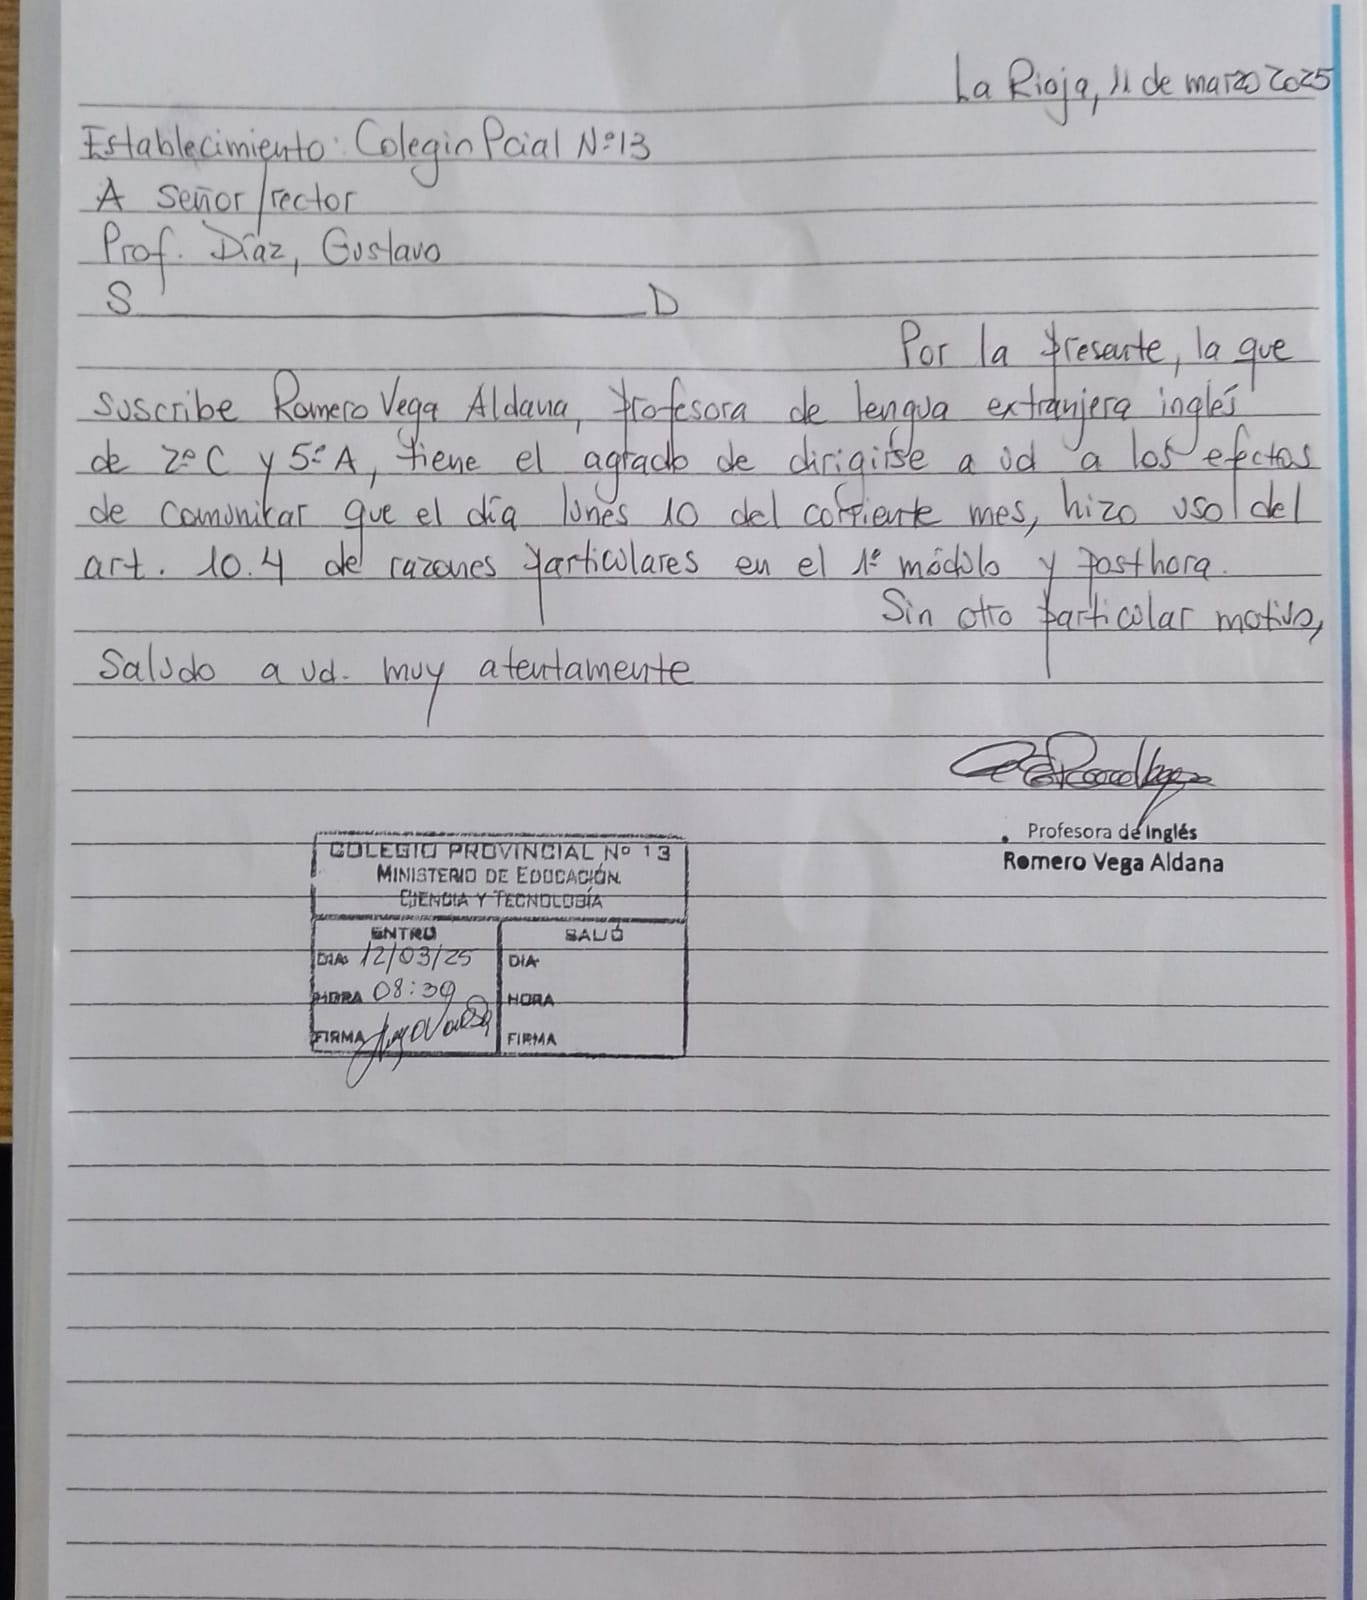 La Rioja, 11 de marzo 2025
Establecimiento: Colegio Pcial Nº13
A señor/rector
Prof. Díaz, Gustavo
S D
Por la presente, la que
suscribe Romero Vega Aldana, profesora de lengua extranjera inglés
de 2º C y 5º A, tiene el agrado de dirigirse a ud a los efectos
de comunicar que el día lunes 10 del corriente mes, hizo uso del
art. 10.4 de razones particulares en el 1º módulo y posthora.
Sin otro particular motivo,
Saludo a ud. muy atentamente
Profesora de Inglés
Romero Vega Aldana
COLEGIO PROVINCIAL Nº 13
MINISTERIO DE EDUCACIÓN
CIENCIA Y TECNOLOGÍA
ENTRÓ SALIÓ
DIA 12/03/25 DIA
HORA 08:39 HORA
FIRMA FIRMA